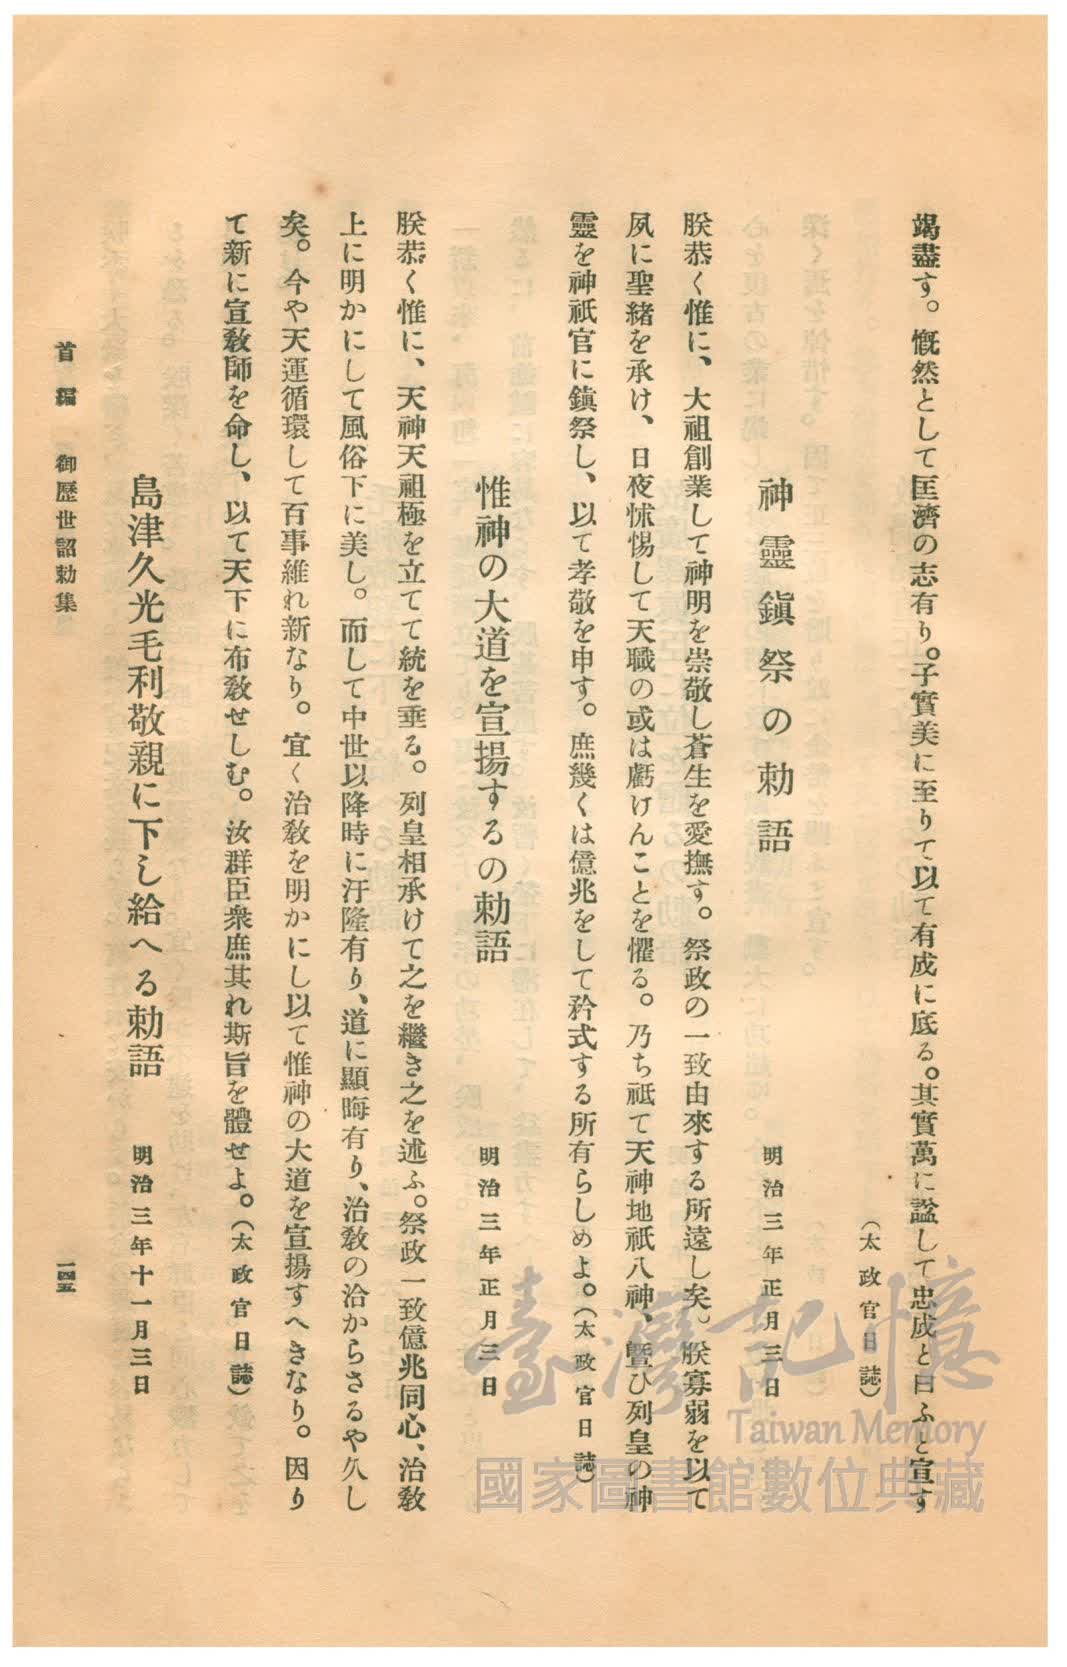 竭盡す。慨然として匡濟の志有り。子實美に至りて以て有成に底る。其實萬に諡して忠成と曰ふと宣す
(太政官日誌)
神靈鎭祭の勅語
明治三年正月三日
朕恭く惟に、大祖創業して神明を崇敬し蒼生を愛撫す。祭政の一致由來する所遠し矣。朕寡弱を以て
夙に聖緒を承け、日夜怵惕して天職の或は虧けんことを懼る。乃ち祗て天神地祇八神、曁ひ列皇の神
靈を神祇官に鎭祭し、以て孝敬を申す。庶幾くは億兆をして矜式する所有らしめよ。(太政官日誌)
惟神の大道を宣揚するの勅語
明治三年正月三日
朕恭く惟に、天神天祖極を立てて統を垂る。列皇相承けて之を繼き之を述ふ。祭政一致億兆同心、治敎
上に明かにして風俗下に美し。而して中世以降時に汙隆有り、道に顯晦有り、治敎の洽からさるや久し
矣。今や天運循環して百事維れ新なり。宜く治敎を明かにし以て惟神の大道を宣揚すへきなり。因り
て新に宣敎師を命し、以て天下に布敎せしむ。汝群臣衆庶其れ斯旨を體せよ。(太政官日誌)
島津久光毛利敬親に下し給へる勅語
明治三年十一月三日
首編 御歷世詔勅集
一四五
臺灣記憶
Taiwan Memory
國家圖書館數位典藏